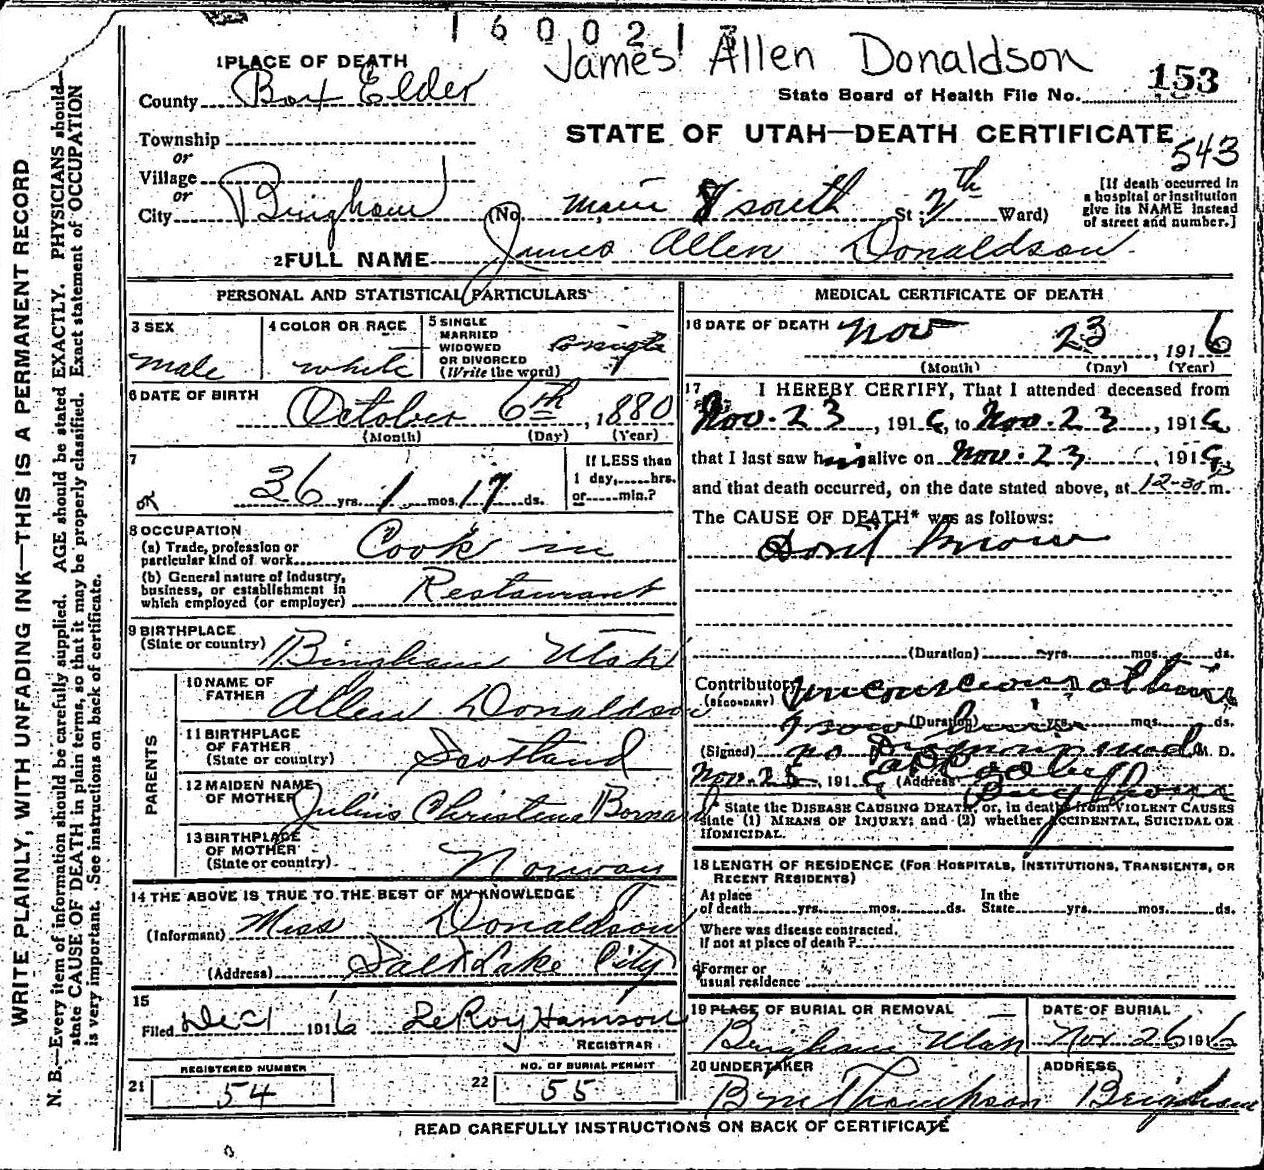 1 6 0 0 2 1 3
James Allen Donaldson
1 PLACE OF DEATH
County Box Elder
State Board of Health File No. 153
Township
STATE OF UTAH—DEATH CERTIFICATE
543
or
Village
or
City Brigham (No. main & south St; 2th Ward)
[If death occurred in a hospital or institution give its NAME instead of street and number.]
2 FULL NAME James Allen Donaldson
PERSONAL AND STATISTICAL PARTICULARS
3 SEX male
4 COLOR OR RACE white
5 SINGLE MARRIED WIDOWED OR DIVORCED (Write the word) single
6 DATE OF BIRTH October 6th, 1880
(Month) (Day) (Year)
7 36 yrs. 1 mos. 17 ds.
If LESS than 1 day,......hrs. or......min.?
8 OCCUPATION
(a) Trade, profession or particular kind of work Cook in
(b) General nature of industry, business, or establishment in which employed (or employer) Restaurant
9 BIRTHPLACE (State or country) Brigham Utah
PARENTS
10 NAME OF FATHER Allen Donaldson
11 BIRTHPLACE OF FATHER (State or country) Scotland
12 MAIDEN NAME OF MOTHER Christina
13 BIRTHPLACE OF MOTHER (State or country) Norway
14 THE ABOVE IS TRUE TO THE BEST OF MY KNOWLEDGE
(Informant) Miss Donaldson
(Address) Salt Lake City
15
Filed Dec 1 1916 LeRoy
REGISTRAR
21 REGISTERED NUMBER 54
22 NO. OF BURIAL PERMIT 55
MEDICAL CERTIFICATE OF DEATH
16 DATE OF DEATH Nov 23, 1916
(Month) (Day) (Year)
17 I HEREBY CERTIFY, That I attended deceased from
Nov. 23, 1916, to Nov. 23, 1916
that I last saw him alive on Nov. 23, 1916
and that death occurred, on the date stated above, at 12-30 m.
The CAUSE OF DEATH* was as follows:
Don't know
(Duration) yrs. mos. ds.
Contributory (SECONDARY) unconscious at time
I saw him (Duration) yrs. mos. ds.
(Signed) no M. D.
Nov. 25, 191 (Address)
* State the DISEASE CAUSING DEATH, or, in deaths from VIOLENT CAUSES
state (1) MEANS OF INJURY; and (2) whether ACCIDENTAL, SUICIDAL OR
HOMICIDAL.
18 LENGTH OF RESIDENCE (FOR HOSPITALS, INSTITUTIONS, TRANSIENTS, OR
RECENT RESIDENTS)
At place of death yrs. mos. ds. In the State yrs. mos. ds.
Where was disease contracted,
if not at place of death?
Former or
usual residence
19 PLACE OF BURIAL OR REMOVAL Brigham Utah
DATE OF BURIAL Nov 26 1916
20 UNDERTAKER Thompson
ADDRESS Brigham
READ CAREFULLY INSTRUCTIONS ON BACK OF CERTIFICATE
WRITE PLAINLY, WITH UNFADING INK—THIS IS A PERMANENT RECORD
N. B.—Every item of information should be carefully supplied. AGE should be stated EXACTLY. PHYSICIANS should
state CAUSE OF DEATH in plain terms, so that it may be properly classified. Exact statement of OCCUPATION
is very important. See instructions on back of certificate.